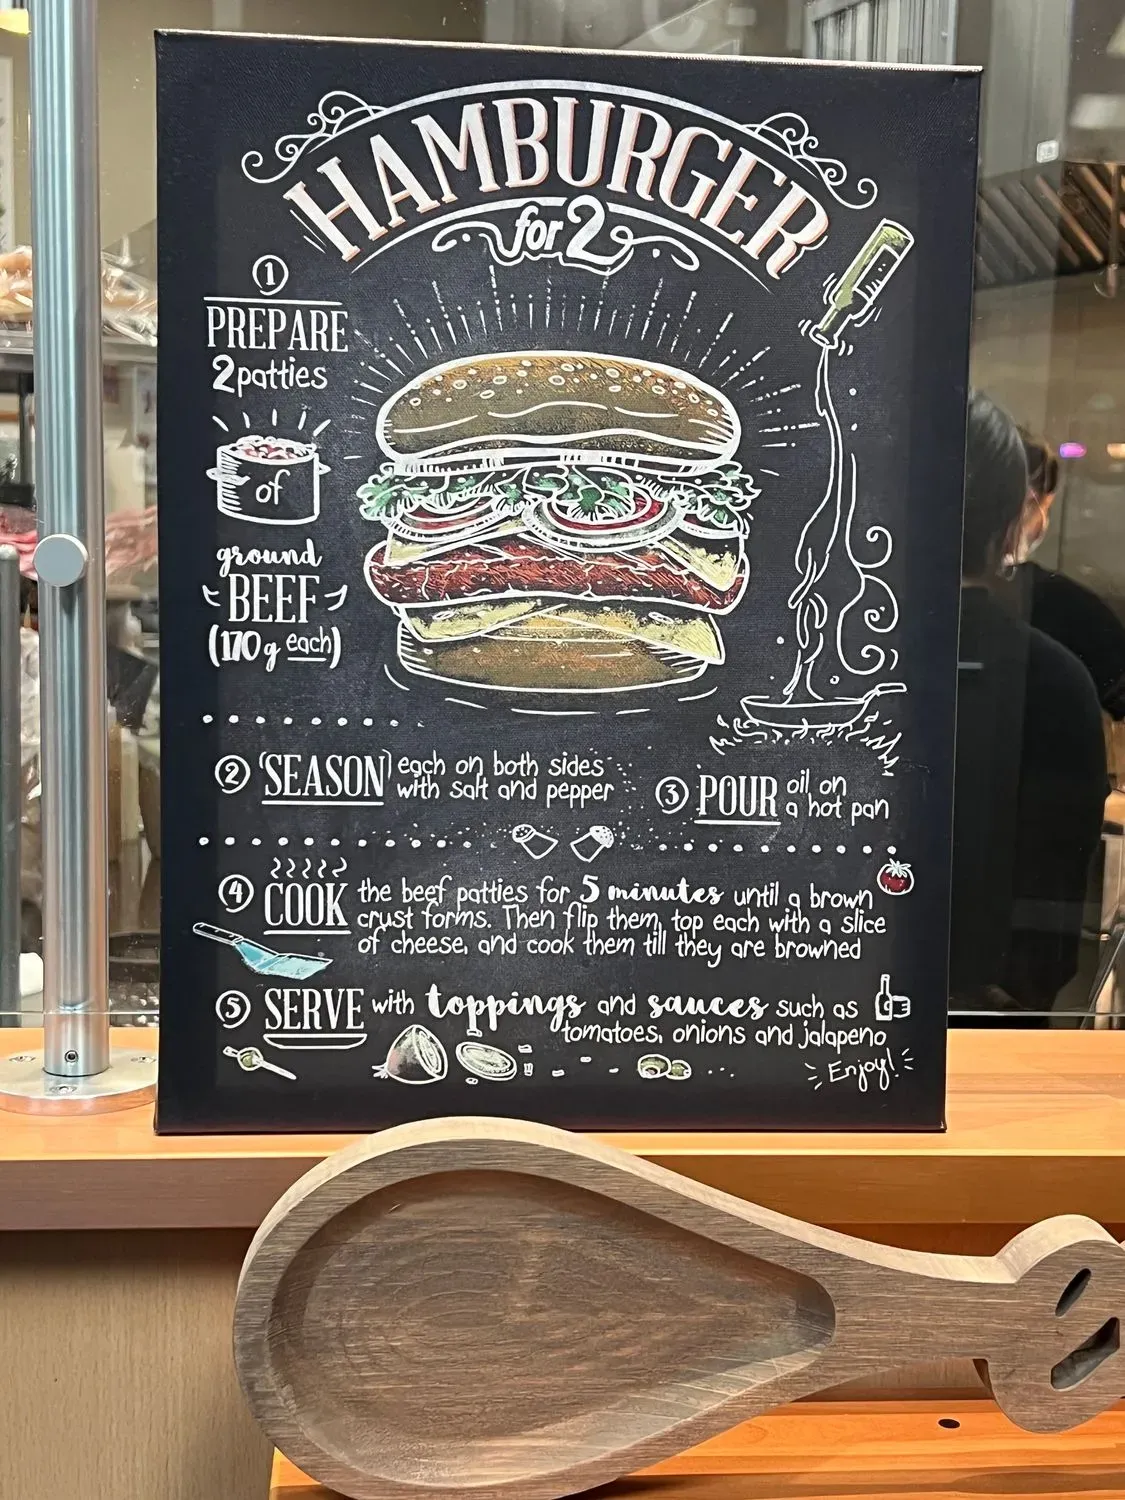 HAMBURGER
for 2
1
PREPARE
2 patties
of
ground
BEEF
(170g each)
2 SEASON each on both sides
with salt and pepper
3 POUR oil on
a hot pan
4 COOK the beef patties for 5 minutes until a brown
crust forms. Then flip them, top each with a slice
of cheese, and cook them till they are browned
5 SERVE with toppings and sauces such as
tomatoes, onions and jalapeno
Enjoy!